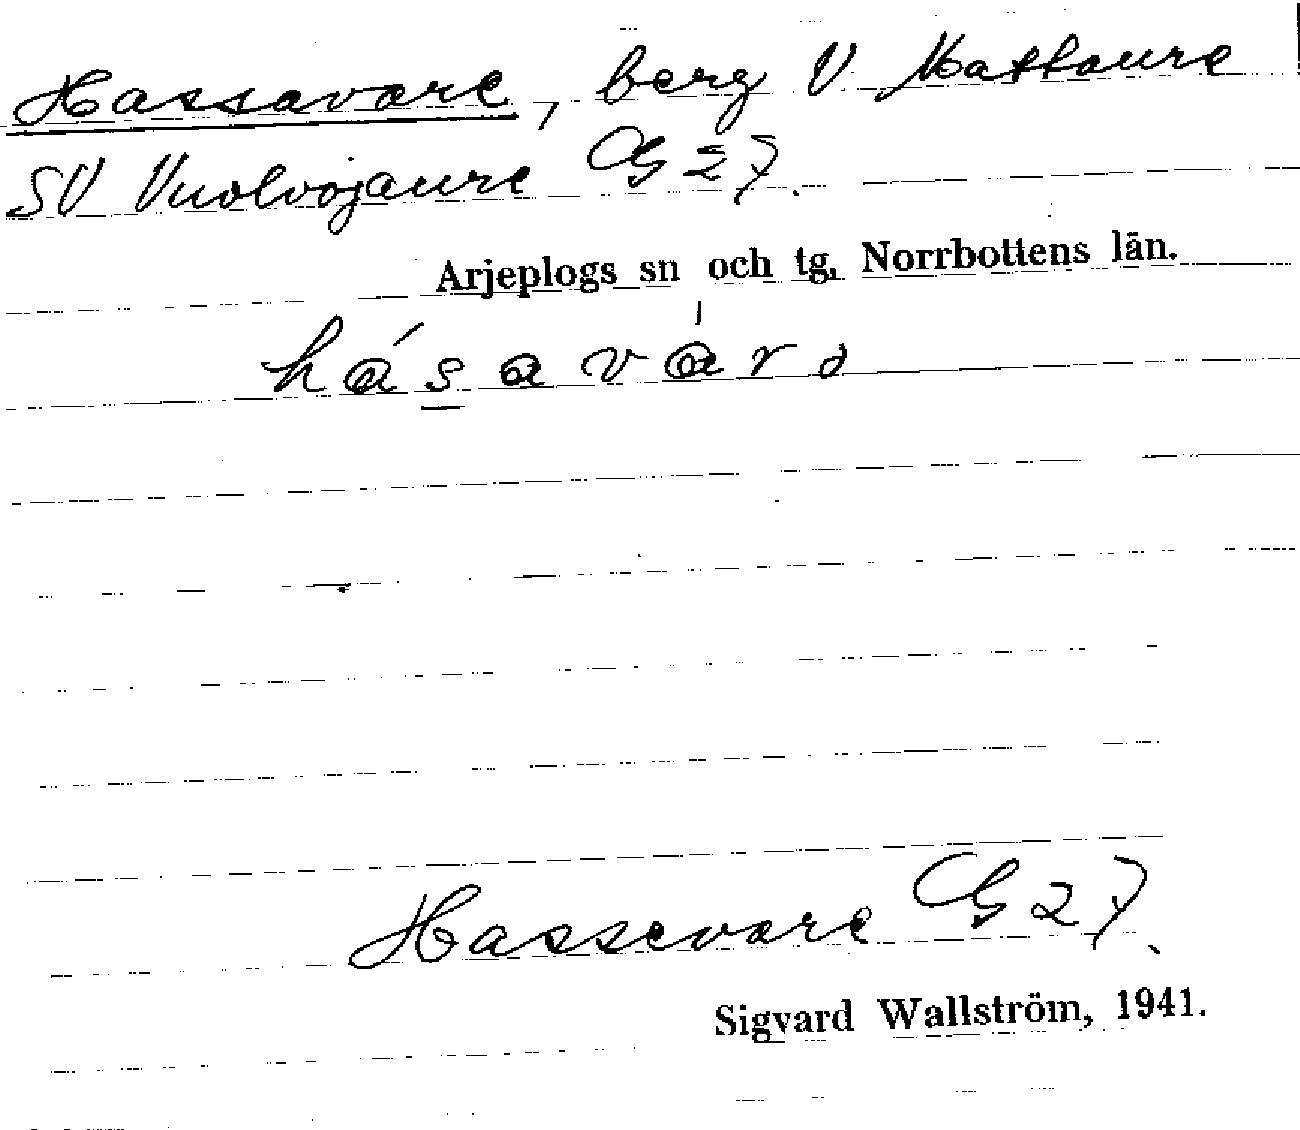 Hassavare, berg V Mattaure
SV Vuolvojaure G 27.
Arjeplogs sn och tg, Norrbottens län.
hásavàrə
Hassevare G 27.
Sigvard Wallström, 1941.